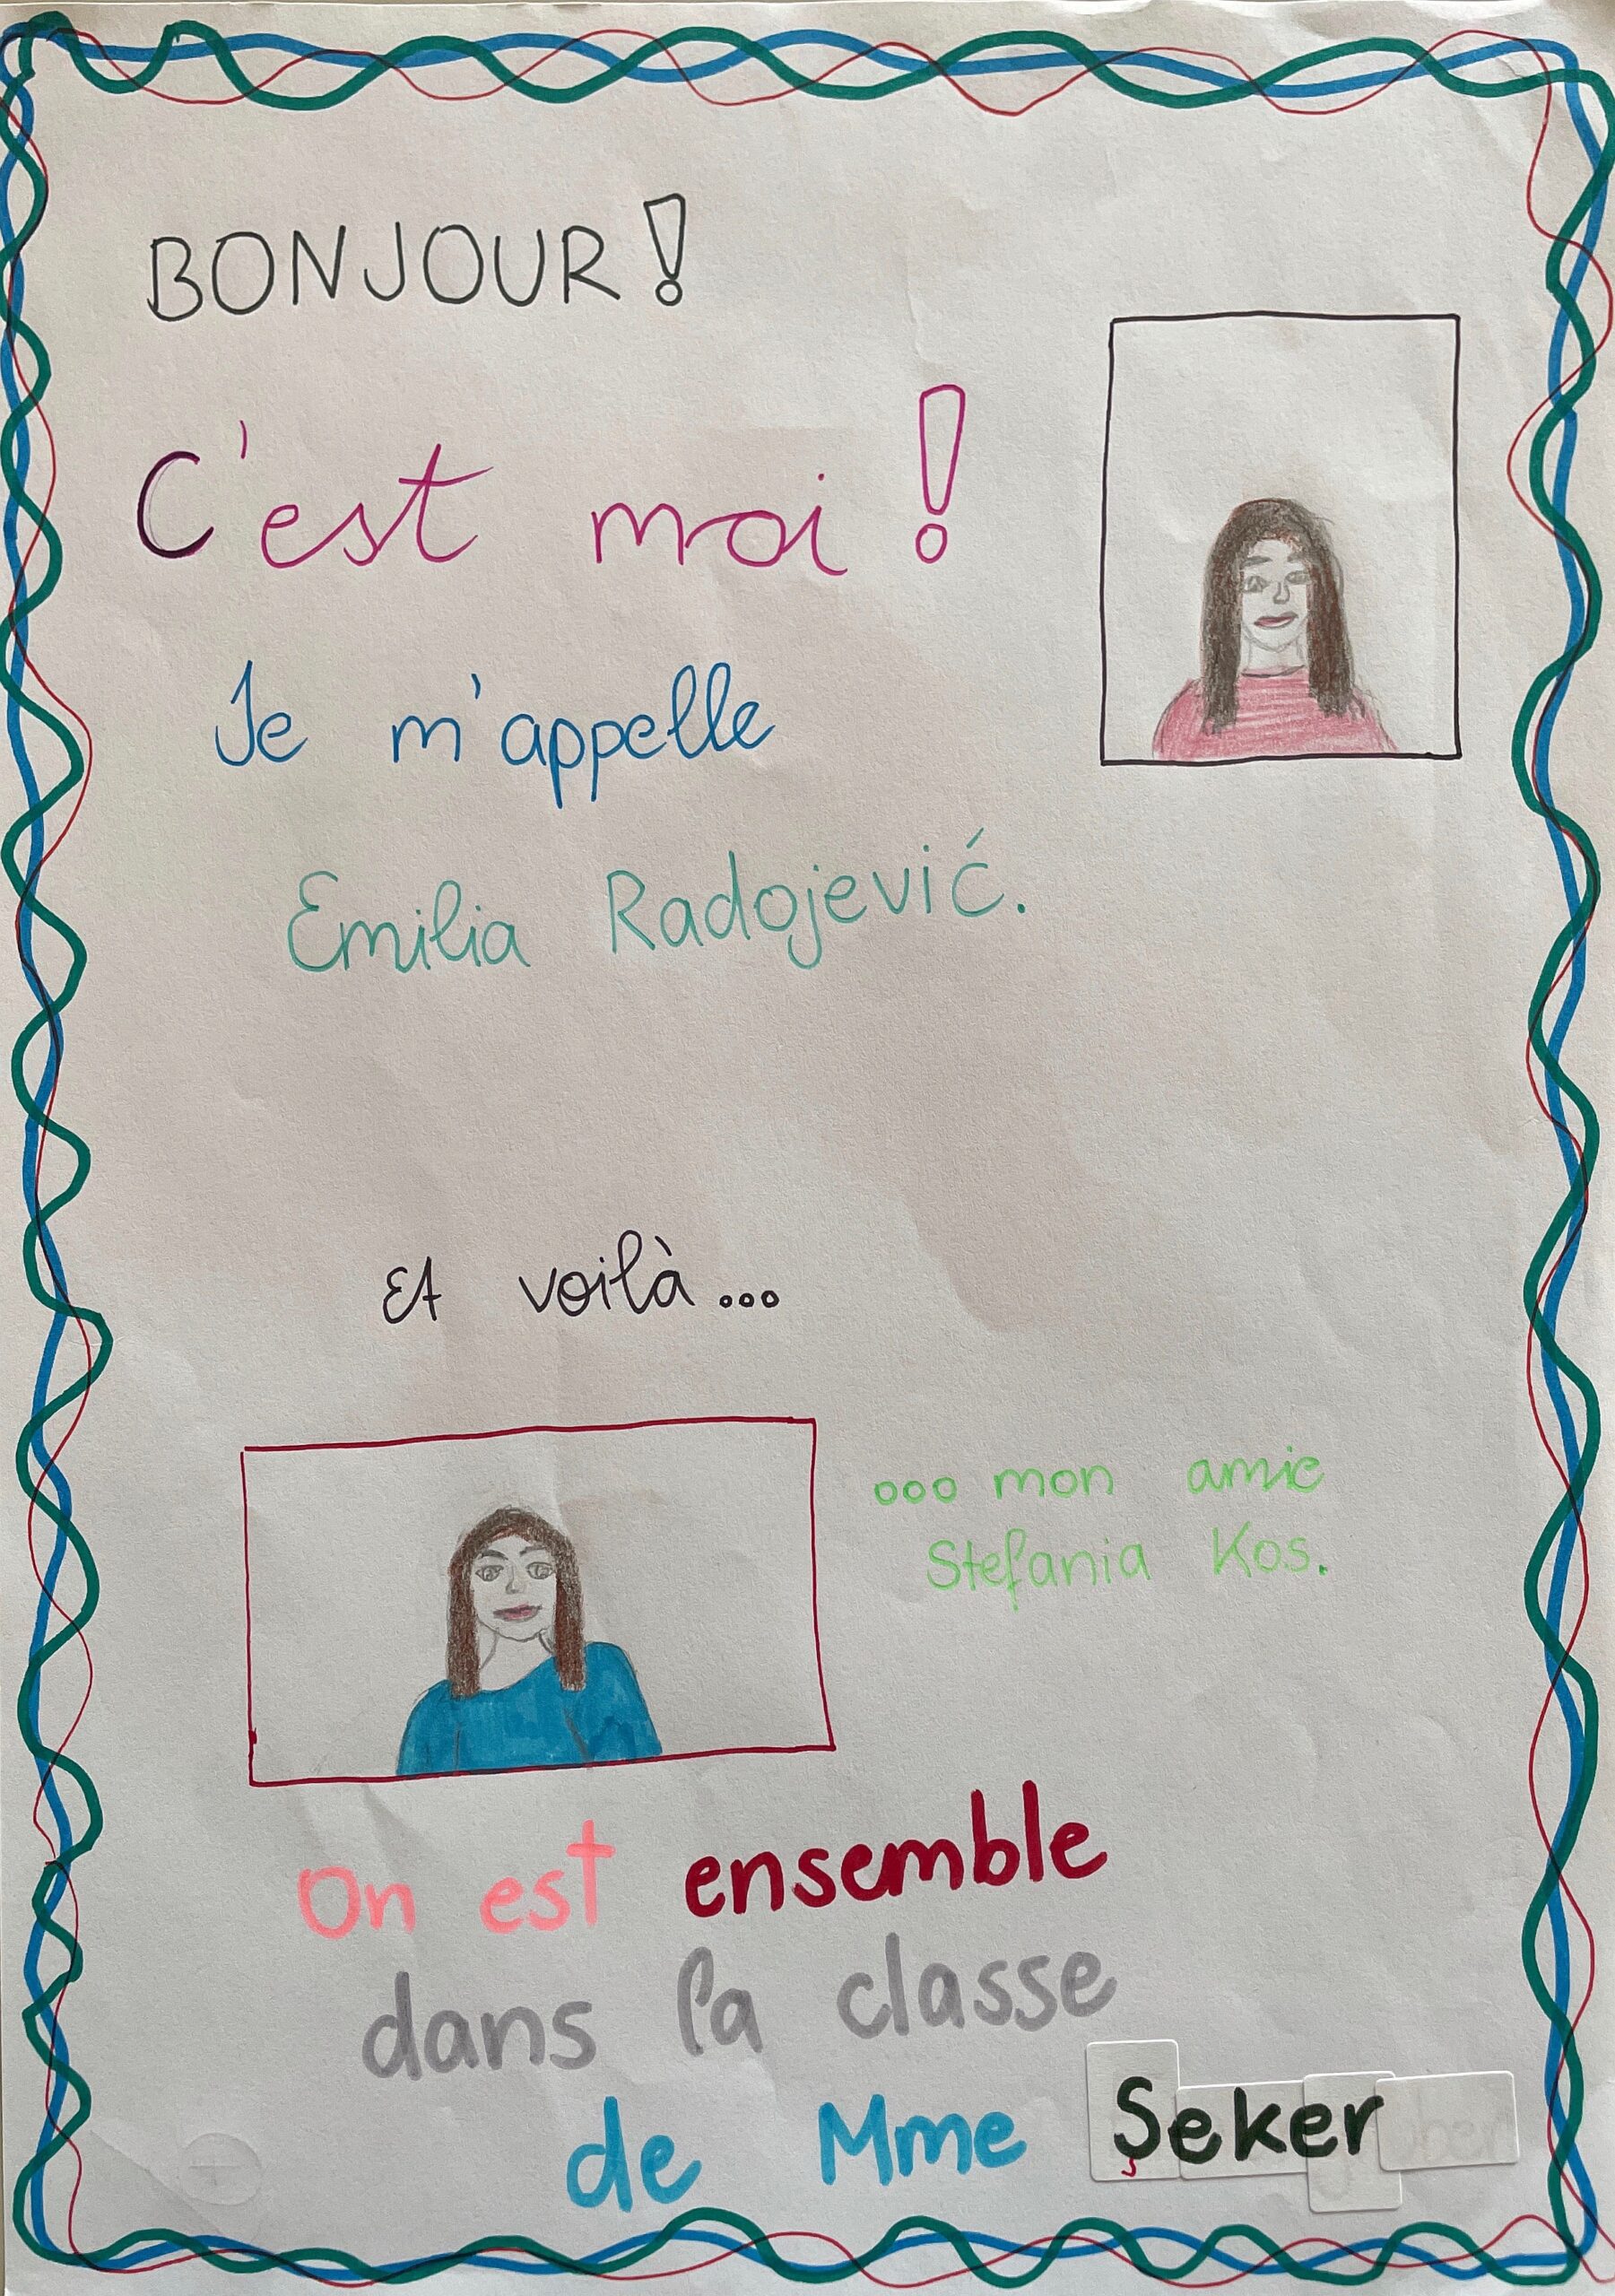 BONJOUR!
C'est moi!
Je m'appelle
Emilia Radojević.
Et voilà...
... mon amie
Stefania Kos.
On est ensemble
dans la classe
de Mme Şeker